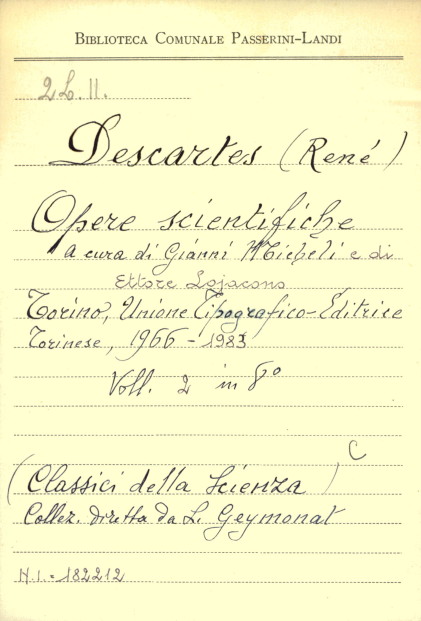 BIBLIOTECA COMUNALE PASSERINI-LANDI
2L.II.
Descartes (René)
Opere scientifiche
a cura di Gianni Micheli e di
Ettore Lojacono
Torino, Unione Tipografico-Editrice
Torinese, 1966-1983
Voll. 2 in 8°
C
(Classici della Scienza)
Collez. diretta da L. Geymonat
N.I. = 182212